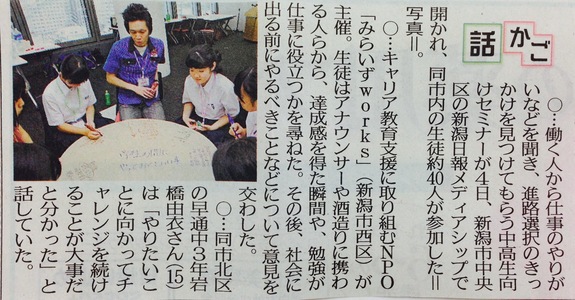 かご話
○…働く人から仕事のやりが
いなどを聞き、進路選択のきっ
かけを見つけてもらう中高生向
けセミナーが4日、新潟市中央
区の新潟日報メディアシップで
開かれ、同市内の生徒約40人が参加した＝
写真＝。
○…キャリア教育支援に取り組むNPO
「みらいずworks」（新潟市西区）が
主催。生徒はアナウンサーや酒造りに携わ
る人らから、達成感を得た瞬間や、勉強が
仕事に役立つかを尋ねた。その後、社会に
出る前にやるべきことなどについて意見を
交わした。
○…同市北区
の早通中3年岩
橋由衣さん(15)
は「やりたいこ
とに向かってチ
ャレンジを続け
ることが大事だ
と分かった」と
話していた。